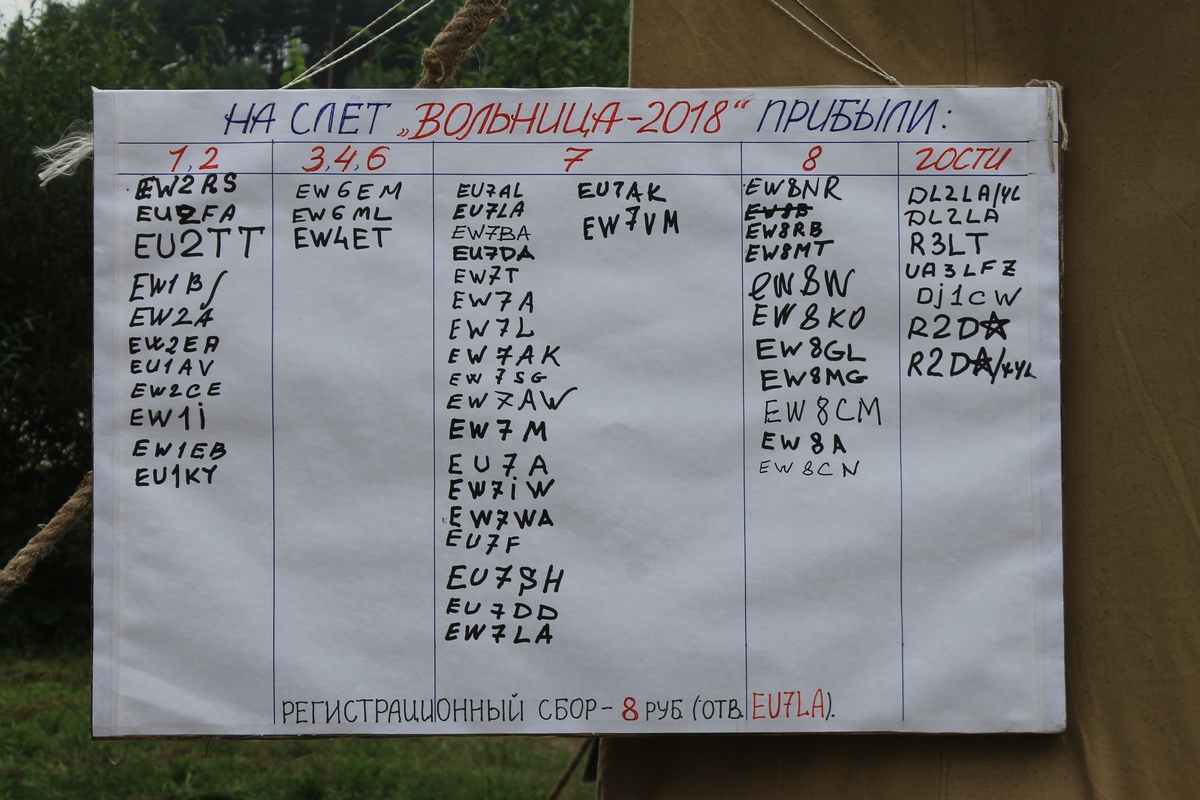 НА СЛЕТ „ВОЛЬНИЦА-2018“ ПРИБЫЛИ:
1,2
EW2RS
EU2FA
EU2TT
EW1BS
EW2A
EW2EA
EU1AV
EW2CE
EW1i
EW1EB
EU1KY
3,4,6
EW6EM
EW6ML
EW4ET
7
EU7AL
EU7LA
EW7BA
EU7DA
EW7T
EW7A
EW7L
EW7AK
EW7SG
EW7AW
EW7M
EU7A
EW7iW
EW7WA
EU7F
EU7SH
EU7DD
EW7LA
EU7AK
EW7VM
8
EW8NR
EW8RB
EW8MT
EW8W
EW8KO
EW8GL
EW8MG
EW8CM
EW8A
EW8CN
ГОСТИ
DL2LA/YL
DL2LA
R3LT
UA3LFZ
Dj1CW
R2D☆
R2D☆/4YL
РЕГИСТРАЦИОННЫЙ СБОР - 8 РУБ (ОТВ. EU7LA).